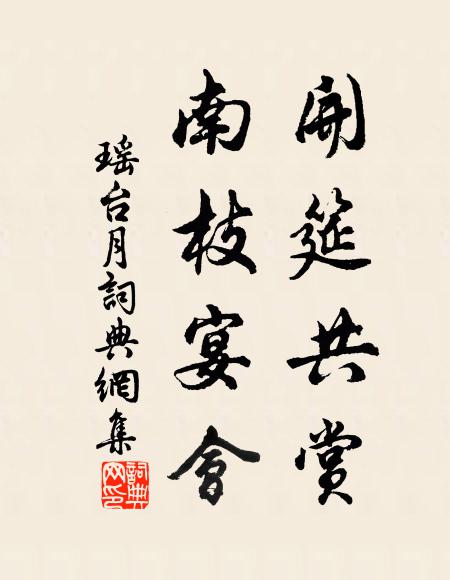 開筵共赏
南枝宴會
瑶台月詞典網集
詞典网印